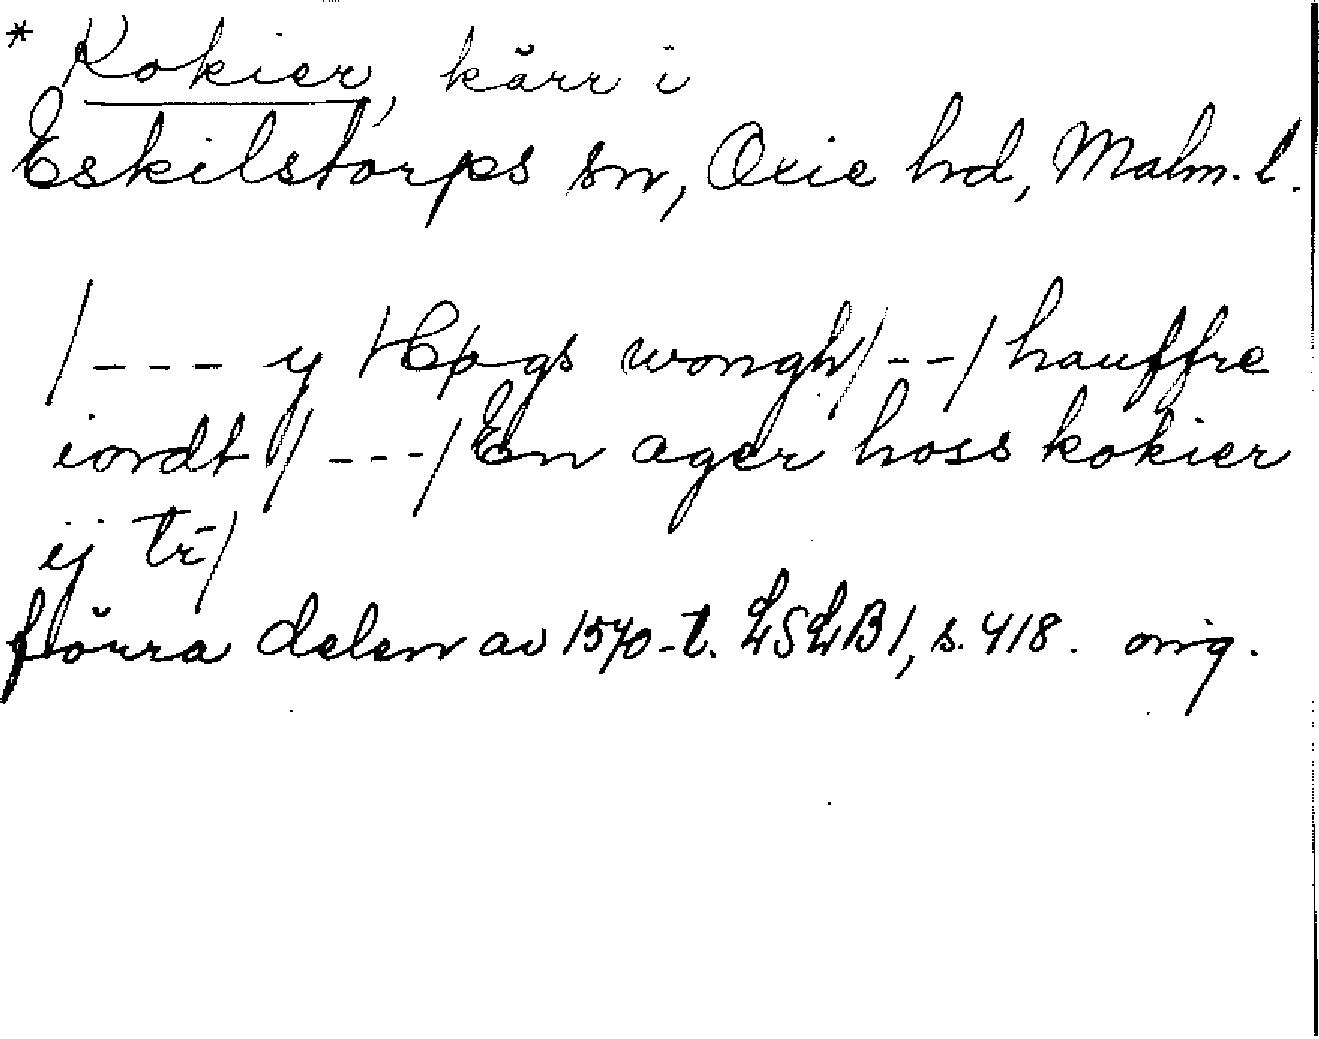 * Kokier, kärr i
Eskilstorps sn, Oxie hd, Malm. l.
/--- y /Högs wongh/--/ hauffre
iordt // ---/ En ager hoss kokier
ij tr/
förra delen av 1570-t. LSLB 1, s. 418. orig.